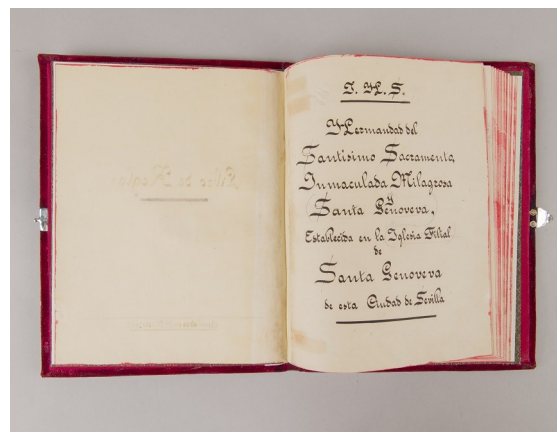 J. H. S.
Hermandad del
Santísimo Sacramento,
Inmaculada Milagrosa
y
Santa Genoveva,
Establecida en la Iglesia Filial
de
Santa Genoveva
de esta Ciudad de Sevilla